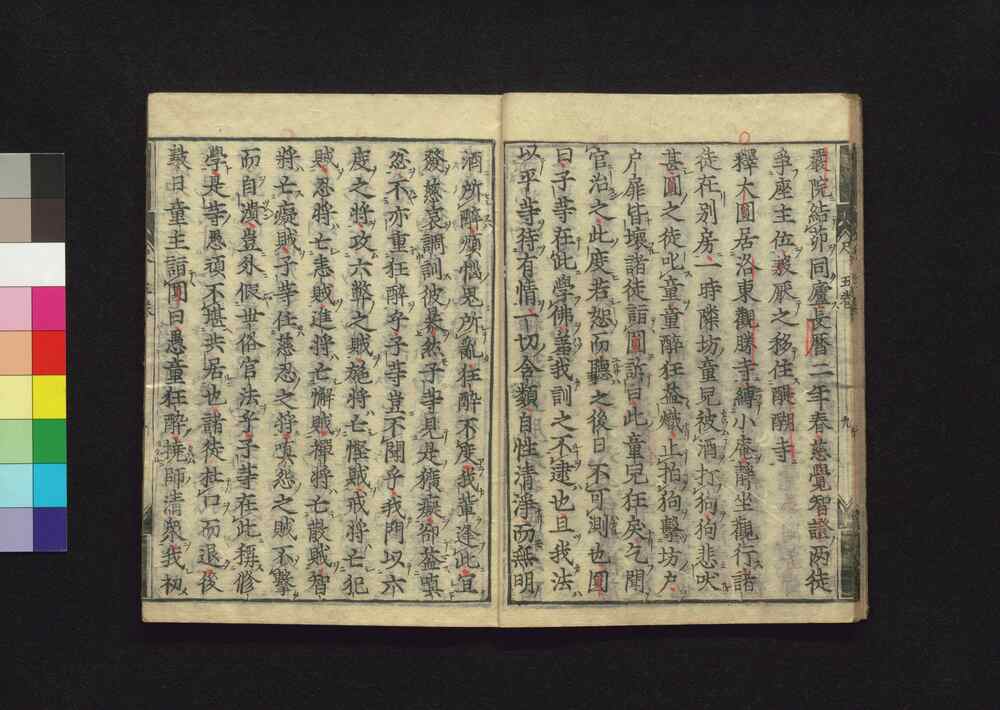 嚴院結茆同廬長暦二年春慈覺智證兩徒
爭座主位被厭之移住醍醐寺
釋大圓居洛東觀勝寺縛小庵靜坐觀行諸
徒在別房一時隣坊童兒被酒打狗狗悲吠
甚圓之徒叱童童醉狂益熾止拍狗擊坊戶
戶扉皆壞諸徒詣圓訴曰此童兒狂矣乞聞
官治之此度若恕而聽之後日不可測也圓
曰子等在此學佛蓋我訓之不逮也且我法
以平等待有情一切含類自性清淨而無明
酒所醉煩惱鬼所亂狂醉不度我輩逢此宜
發慈哀調訓彼暴然子等見是獷癡却益嗔
忿不亦重狂醉乎子等豈不聞乎我門以六
度之將攻六弊之賊施將亡慳賊戒將亡犯
賊忍將亡恚賊進將亡懈賊禪將亡散賊智
將亡癡賊子等任慈忍之將嗔怨之賊不擊
而自潰豈外假世俗官法乎子等在此稱修
學是等愚頑不堪共居也諸徒杜口而退後
數日童主詣圓曰愚童狂醉撓師清衆我初
五
九